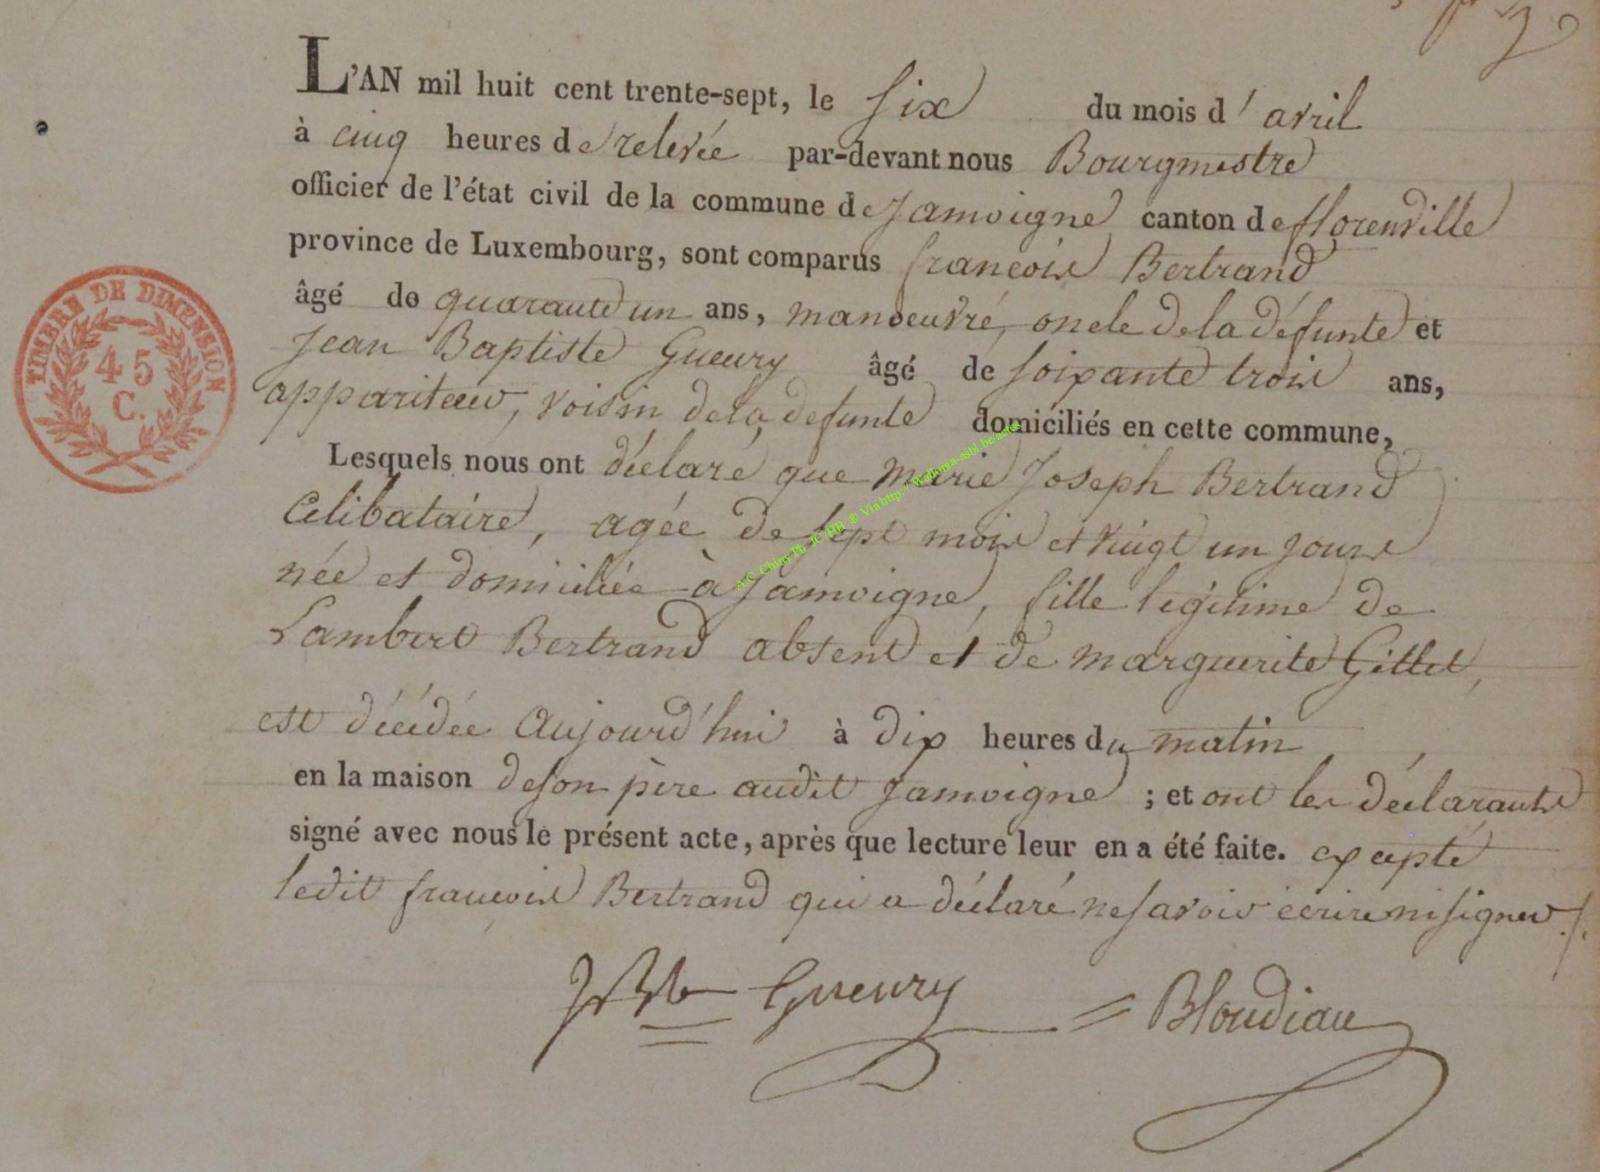 L'AN mil huit cent trente-sept, le six du mois d'avril
à cinq heures de relevée par-devant nous Bourgmestre
officier de l'état civil de la commune de Jamoigne canton de florenville
province de Luxembourg, sont comparus françois Bertrand
âgé de quarante un ans, manoeuvré, oncle de la défunte et
Jean Baptiste Gueury âgé de soixante trois ans,
appariteur, voisin de la défunte domiciliés en cette commune,
Lesquels nous ont déclaré que marie Joseph Bertrand
Célibataire, agée de sept mois et vingt un jours
née et domiciliée à Jamoigne, fille légitime de
Lambert Bertrand absent et de marguerite Gillet,
est décédée aujourd'hui à dix heures du matin
en la maison de son père audit Jamoigne ; et ont les déclarants
signé avec nous le présent acte, après que lecture leur en a été faite. excepté
ledit françois Bertrand qui a déclaré ne savoir écrire ni signer ./.
Gueury = Blondiau
TIMBRE DE DIMENSION
45
C.